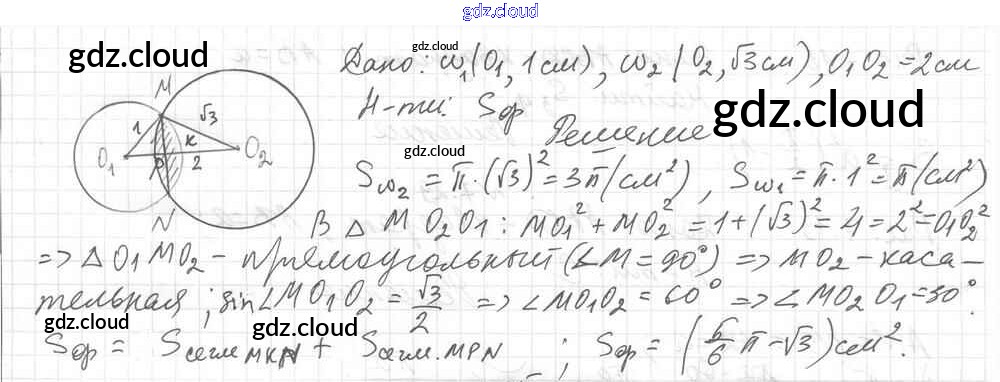 gdz.cloud
gdz.cloud
gdz.cloud
Дано: ω₁(O₁, 1 см), ω₂(O₂, √3 см), O₁O₂ = 2 см
M
√3
Н-ти: Sφ
gdz.cloud
1
K
Решение
O₁
P
2
O₂
gdz.cloud
Sω₂ = π·(√3)² = 3π (см²), Sω₁ = π·1² = π (см²)
gdz.cloud
N
В △ M O₂O₁: MO₁² + MO₂² = 1 + (√3)² = 4 = 2² = O₁O₂²
=> △ O₁MO₂ – прямоугольный (∠M = 90°) => MO₂ – каса-
тельная; sin∠MO₁O₂ = √3/2 => ∠MO₁O₂ = 60° => ∠MO₂O₁ = 30°.
gdz.cloud
gdz.cloud
gdz.cloud
Sφ = Sсегм.MKN + Sсегм.MPN; Sφ = (5/6 π – √3) см².